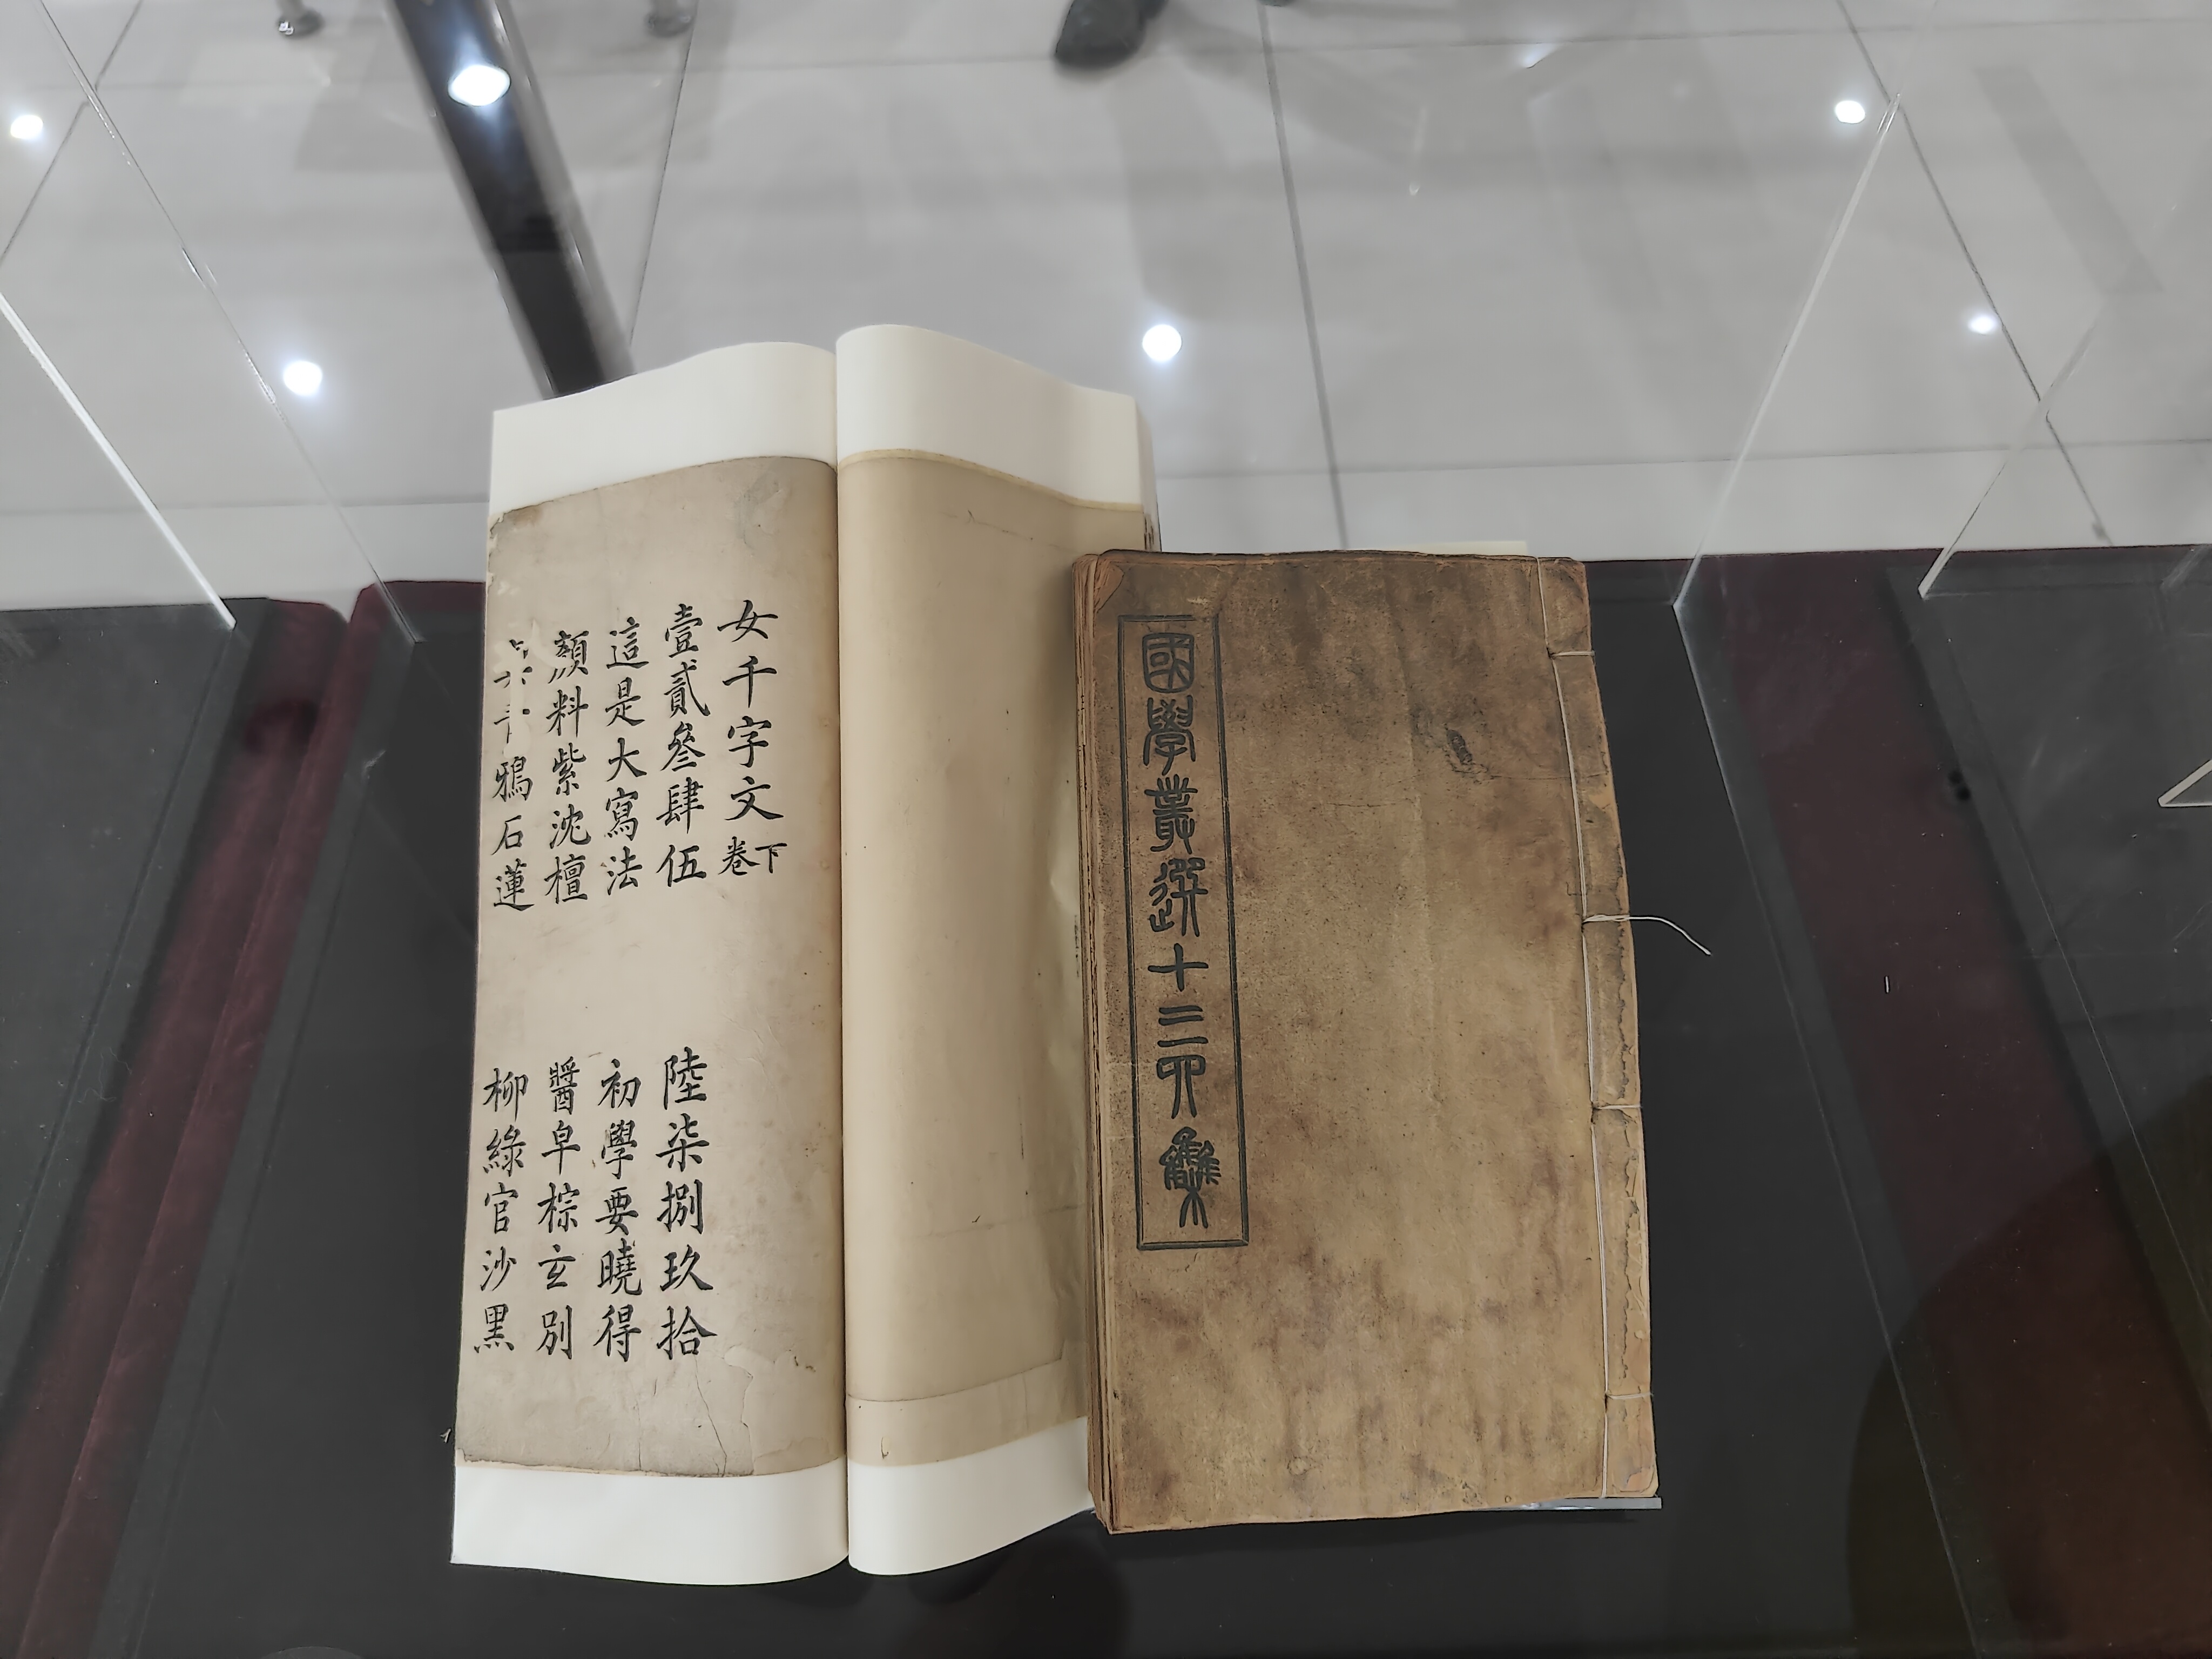 國學叢選十三四集
女千字文下卷
壹貳叄肆伍 陸柒捌玖拾
這是大寫法 初學要曉得
顏料紫沈檀 醬皁棕玄別
鴉石蓮 柳綠官沙黑